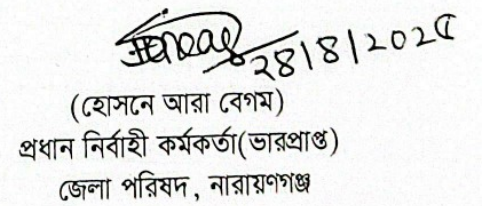 ২৪/৪/২০২৫
(হোসনে আরা বেগম)
প্রধান নির্বাহী কর্মকর্তা(ভারপ্রাপ্ত)
জেলা পরিষদ, নারায়ণগঞ্জ